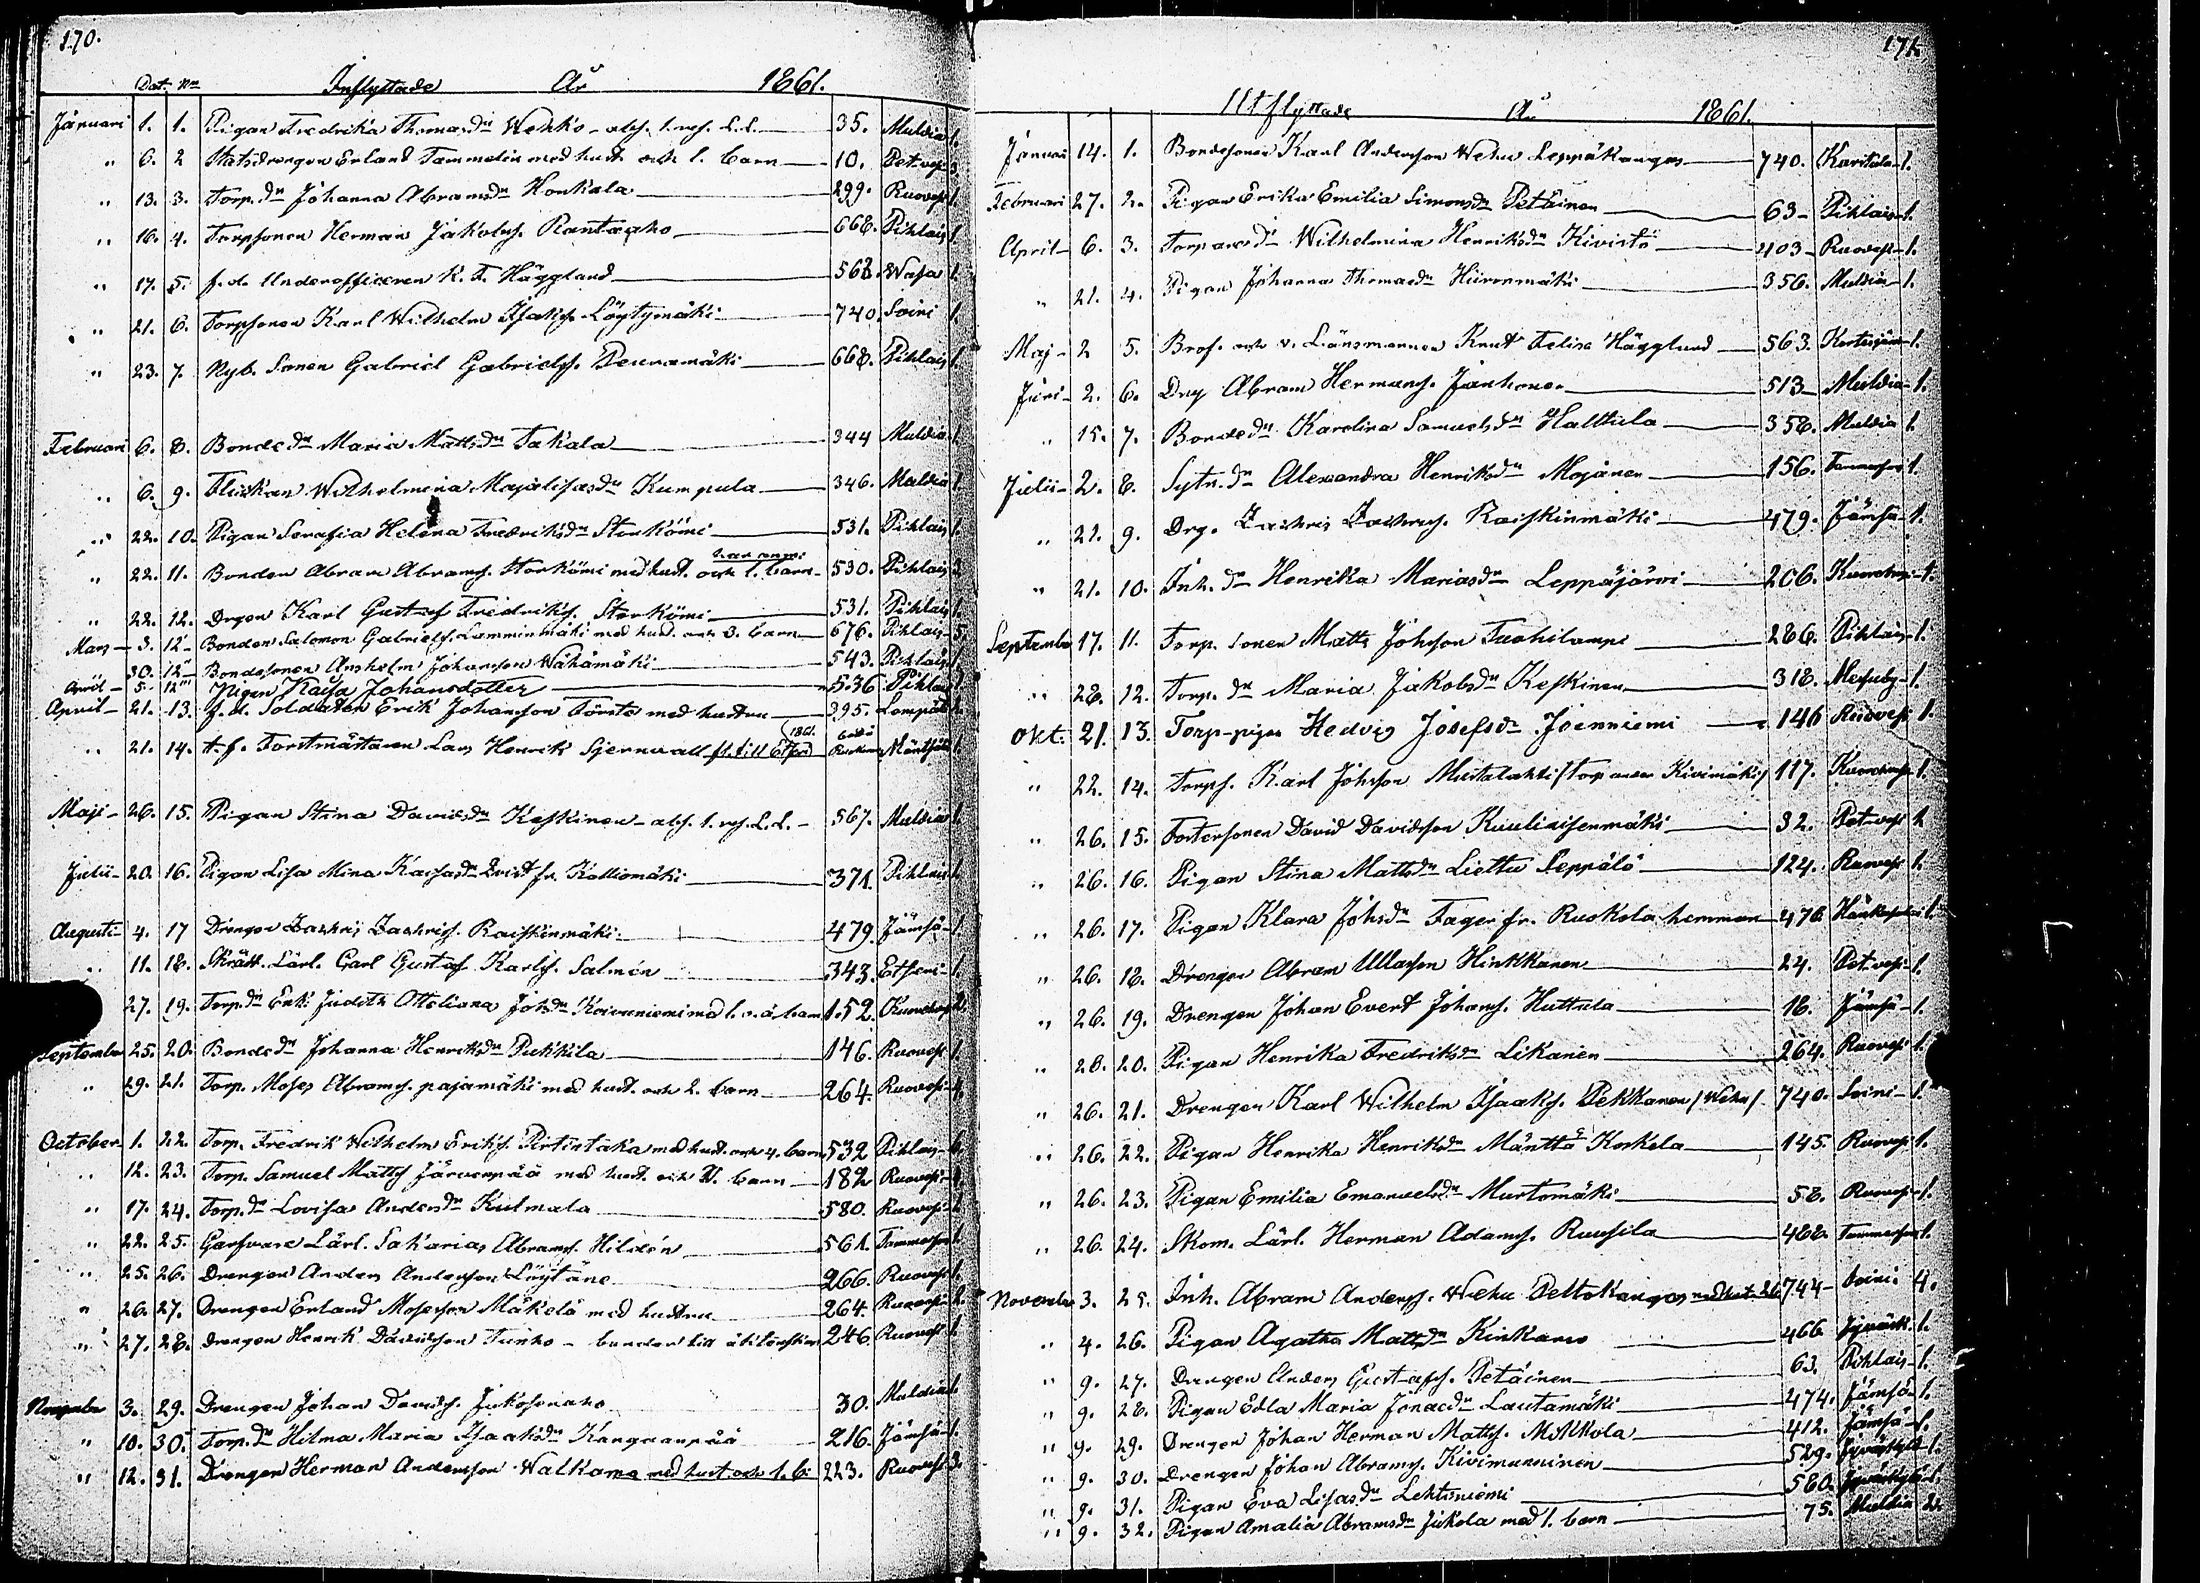 170.
Dat. No Inflyttade År 1861.
Januari 1. 1. Pigan Fredrika Thomasdr Wehko 35. Muldia 1.
" 6. 2 Statsdrengen Erland Tammelin med hust. och 1. barn 10. Pet.vesi 3
" 13. 3. Torp.dr Johanna Abramsdr Honkala 299. Ruovesi 1
" 16. 4. Torpsonen Herman Jakobss. Rantaaho 668. Pihlais 1
" 17. 5. f.d. Underofficeren K. F. Hägglund 563. Wasa 1.
" 21. 6. Torpsonen Karl Wilhelm Isakss. Löytymäki 740. Soini 1.
" 23. 7. Nyb. Sonen Gabriel Gabrielss. Peuramäki 668. Pihlais 1.
Februari 6. 8. Bondedr Maria Mattsdr Takala 344 Muldia 1.
" 6. 9. Flickan Wilhelmina Majalisasdr Kumpula 346. Muldia 1
" 22. 10. Pigan Serafia Helena Fredriksdr Storkömi 531. Pihlais 1
" 22. 11. Bonden Abram Abramss. Storkömi med hust. och 1. barn 530. Pihlais
" 22. 12. Drgen Karl Gustaf Fredrikss. Storkömi 531. Pihlais 1.
Mars 3. 12' Bonden Salomon Gabrielss. Lamminmäki med hust. och 3. barn 676. Pihlais 5.
30. 12" Bondesonen Anshelm Johansson Wähämäki 543. Pihlais 1.
April 5. 12"' Pigan Kaisa Johansdotter 536 Pihlais 1
April 21. 13. f.d. Soldaten Erik Johansson Förste med hustru 295. Lampis 2.
" 21. 14. t.f. Forstmästaren Lars Henrik Sjernvall fl. till 1861. Mäntsälä 1
Maji 26. 15. Pigan Stina Davidsdr Keskinen 567. Muldia 1.
Julii 20. 16. Pigan Lisa Mina Kaisasdr Qvist fr. Kalliomäki 371. Pihlais 1.
Augusti 4. 17 Drengen Zachris Zachriss. Raiskinmäki 479. Jämsä 1.
11. 18. Skrädd. Lärl. Carl Gustaf Karlss. Salmén 343. Etseri 1.
27. 19. Torp.dr Enk. Judith Otteliana Johsdr Koivuniemi med 1. o.ä. barn 152. Kuorehvesi 2.
September 25. 20. Bondedr Johanna Henriksdr Pukkila 146. Ruovesi 1.
" 29. 21. Torp. Moses Abramss. pajamäki med hust. och 2. barn 264. Ruovesi 4.
October 1. 22. Torp. Fredrik Wilhelm Erikss. Pirtintaka med hust. och 4. barn 532 Pihlais 6.
" 12. 23. Torp. Samuel Matts Järvenpää med hust. och barn 182 Ruovesi
" 17. 24. Torp.dr Lovisa Andersdr Kulmala 580. Ruovesi 1
" 22. 25. Garfvare Lärl. Sakarias Abramss. Hildén 561. Tammerfors 1.
" 25. 26. Drengen Anders Andersson Löytäne 266. Ruovesi 1.
" 26. 27. Drengen Erland Mosesson Mäkelä med hustru 264. Ruovesi 2.
" 27. 28. Drengen Henrik Davidsson Turko 246. Ruovesi 1.
November 3. 29. Drengen Johan Davidss. Jukosenaho 30. Muldia 1.
" 10. 30. Torp.dr Hilma Maria Isaaksdr Kangaanpää 216 Jämsä 1.
" 12. 31. Drengen Herman Andersson Walkama med hust och 1. b. 223. Ruovesi 3.
171.
Utflyttade År 1861.
Januari 14. 1. Bondesonen Karl Andersson Wehu Leppäkangas 740. Karstula 1.
Februari 27. 2. Pigan Erika Emilia Simonsdr Petäinen 63 Pihlais 1.
April 6. 3. Torparedr Wilhelmina Henriksdr Kivistö 403 Ruovesi 1.
" 21. 4. Pigan Johanna Thomasdr Hiironmäki 356. Muldia 1.
Maj 2 5. Brof. och v. Länsmannen Knut Felix Hägglund 563. Kortesjärvi 1.
Juni 2. 6. Drg Abram Hermanss. Janhonen 513 Muldia 1.
" 15. 7. Bondedr Karolina Samuelsdr Halttula 358. Muldia 1
Julii 2. 8. Sytn.dr Alexandra Henriksdr Mojanen 156. Tammerfors 1.
" 21. 9. Drg. Zachris Zachriss. Raiskinmäki 479. Jämsä 1.
" 21. 10. Inh.dr Henrika Mariasdr Leppäjärvi 206. Kuorehvesi 1.
September 17. 11. Torp. sonen Matts Johsson Tuohilampi 286. Pihlais 1.
" 28. 12. Torp.dr Maria Jakobsdr Keskinen 318. Messuby 1.
Okt. 21. 13. Torp-pigan Hedvig Josefsdr Joenniemi 146 Ruovesi 1.
" 22. 14. Torps. Karl Johsson Mustalahti /Torparen Kivimäki/ 117. Kuorehvesi 1.
" 26. 15. Fostersonen David Davidsson Kuuliaisenmäki 32. Pet.vesi 1.
" 26. 16. Pigan Stina Mattsdr Liettu Seppälä 124. Ruovesi 1.
" 26. 17. Pigan Klara Johsdr Fager fr. Ruokola hemman 476 Hankasalmi 1.
" 26. 18. Drengen Abram Ullasson Hinkkanen 24. Pet.vesi 1.
" 26. 19. Drengen Johan Evert Johanss. Huttula 18. Jämsä 1.
" 26. 20. Pigan Henrika Fredriksdr Likanen 264. Ruovesi 1.
" 26. 21. Drengen Karl Wilhelm Isaakss. Pekkanen /Wehu/ 740. Soini 1.
" 26. 22. Pigan Henrika Henriksdr Mänttä Koskela 145. Ruovesi 1.
" 26. 23. Pigan Emilia Emanuelsdr Murtomäki 58. Ruovesi 1.
" 26. 24. Skom. Lärl. Herman Adamss. Ruusila 468. Tammerfors 1.
November 3. 25. Inh. Abram Anderss. Wehu Peltokangas med hust. 744 Soini 4.
" 4. 26. Pigan Agatha Mattsdr Kinkamo 466 Jyväsk. 1.
" 9. 27. Drengen Anders Gustafss. Petäinen 63. Pihlais 1.
" 9. 28. Pigan Edla Maria Jonaedr Lautamäki 474. Jämsä 1.
" 9. 29. Drengen Johan Herman Mattss. Mikkola 412. Jämsä 1.
" 9. 30. Drengen Johan Abramss. Kivimunninen 529. Jyväskylä 1.
" 9. 31. Pigan Eva Lisasdr Lehtiniemi 580. Jyväskylä 1.
" 9. 32. Pigan Amalia Abramsdr Jukola med 1. barn 75. Muldia 2.